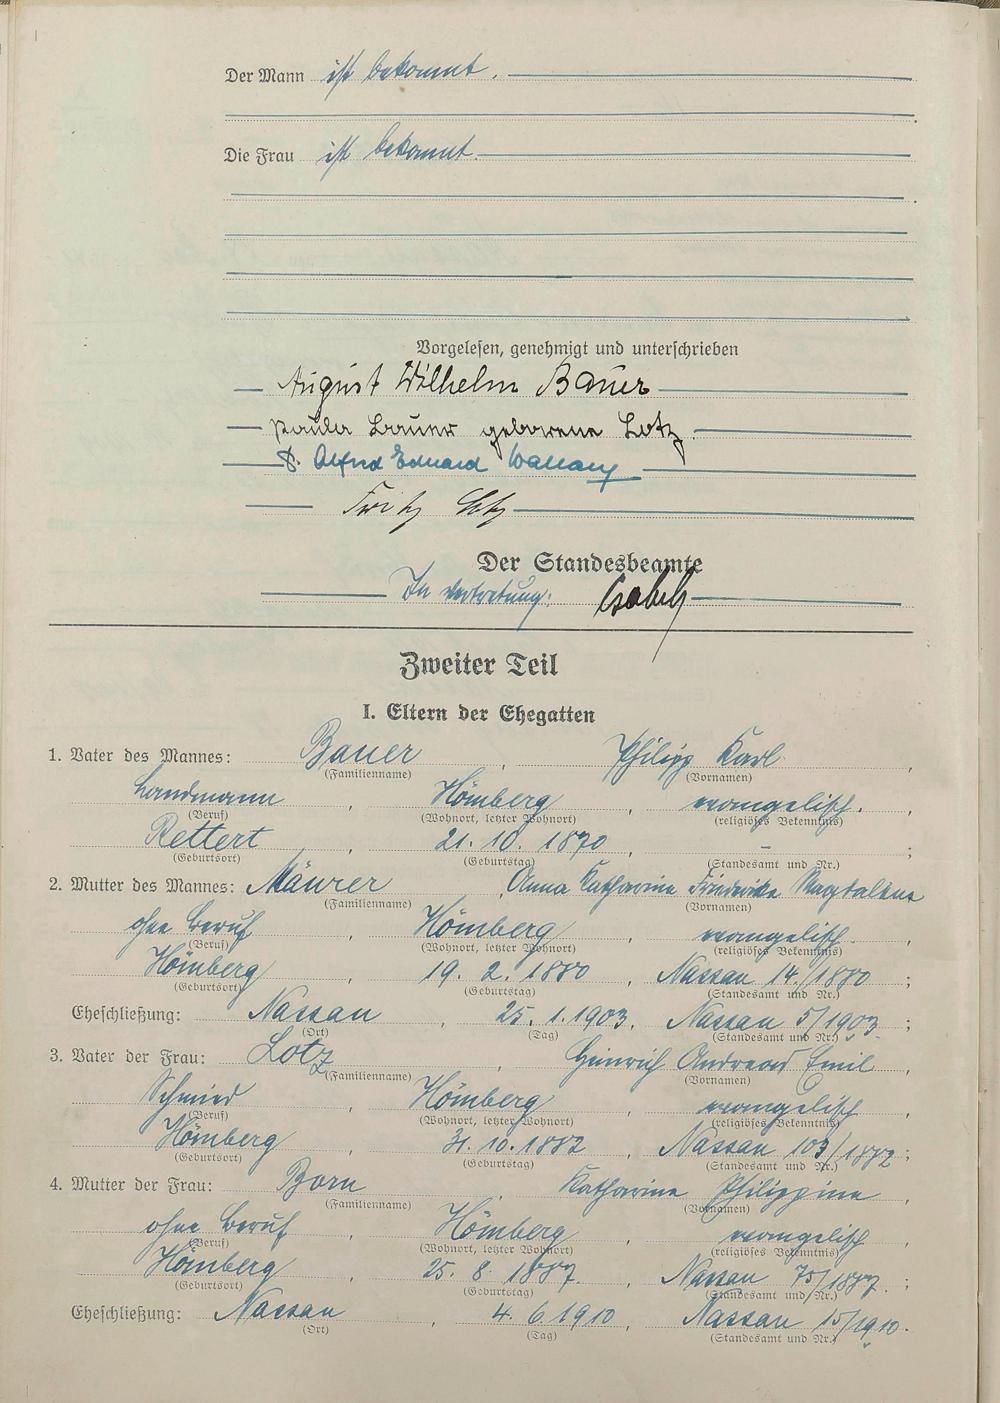 Der Mann ist bekannt.
Die Frau ist bekannt.
Vorgelesen, genehmigt und unterschrieben
August Wilhelm Bauer
Paula Bauer geborene Lotz
Alfred Eduard
Fritz
Der Standesbeamte
In Vertretung:
Zweiter Teil
I. Eltern der Ehegatten
1. Vater des Mannes: Bauer, Philipp Karl,
(Familienname) (Vornamen)
Landmann, Hömberg, evangelisch.
(Beruf) (Wohnort, letzter Wohnort) (religiöses Bekenntnis)
Rettert, 21. 10. 1870, – ;
(Geburtsort) (Geburtstag) (Standesamt und Nr.)
2. Mutter des Mannes: Mäurer, Anna Katharina Friederike Magdalena
(Familienname) (Vornamen)
ohne Beruf, Hömberg, evangelisch.,
(Beruf) (Wohnort, letzter Wohnort) (religiöses Bekenntnis)
Hömberg, 19. 2. 1880, Nassau 14./1880;
(Geburtsort) (Geburtstag) (Standesamt und Nr.)
Eheschließung: Nassau, 25. 1. 1903, Nassau 5/1903;
(Ort) (Tag) (Standesamt und Nr.)
3. Vater der Frau: Lotz, Heinrich Andreas Emil,
(Familienname) (Vornamen)
Schmied, Hömberg, evangelisch,
(Beruf) (Wohnort, letzter Wohnort) (religiöses Bekenntnis)
Hömberg, 31. 10. 1882, Nassau 103/1882;
(Geburtsort) (Geburtstag) (Standesamt und Nr.)
4. Mutter der Frau: Born, Katharine Philippine,
(Familienname) (Vornamen)
ohne Beruf, Hömberg, evangelisch,
(Beruf) (Wohnort, letzter Wohnort) (religiöses Bekenntnis)
Hömberg, 25. 8. 1887., Nassau 75/1887.;
(Geburtsort) (Geburtstag) (Standesamt und Nr.)
Eheschließung: Nassau, 4. 6. 1910, Nassau 15/1910.
(Ort) (Tag) (Standesamt und Nr.)